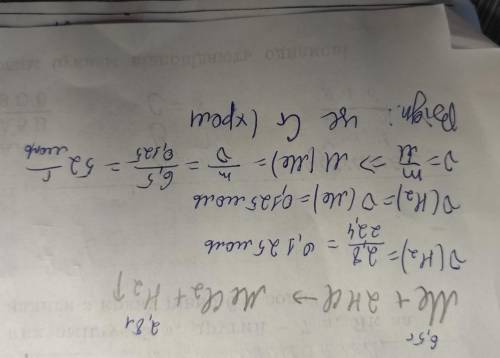 6,5г 2,8л
Me + 2HCl → MeCl₂ + H₂↑
ν(H₂) = 2,8/22,4 = 0,125 моль
ν(H₂) = ν(Me) = 0,125 моль
ν = m/M ⇒ M(Me) = m/ν = 6,5/0,125 = 52 г/моль
Відп.: це Cr (хром